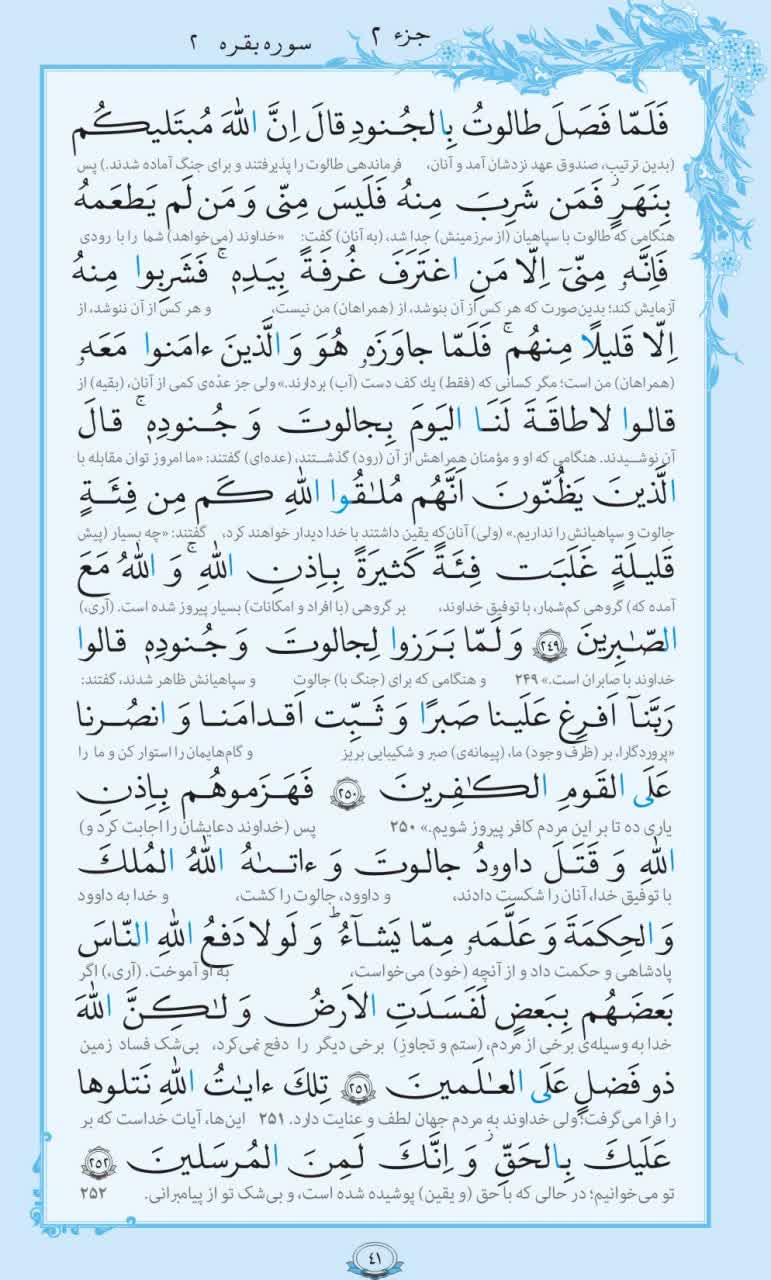 جزء ۲
سوره بقره ۲
فَلَمّا فَصَلَ طالوتُ بِالجُنودِ قالَ اِنَّ اللّٰهَ مُبتَليكُم
(بدین ترتیب، صندوق عهد نزدشان آمد و آنان، فرماندهی طالوت را پذیرفتند و برای جنگ آماده شدند.) پس
بِنَهَرٍ فَمَن شَرِبَ مِنهُ فَلَيسَ مِنّى وَ مَن لَم يَطعَمهُ
هنگامی که طالوت با سپاهیان (از سرزمینش) جدا شد، (به آنان) گفت: «خداوند (می‌خواهد) شما را با رودی
فَاِنَّهٗ مِنّىٓ اِلّا مَنِ اغتَرَفَ غُرفَةً بِيَدِهٖ ۚ فَشَرِبوا مِنهُ
آزمایش کند؛ بدین‌صورت که هر کس از آن بنوشد، از (همراهان) من نیست، و هر کس از آن ننوشد، از
اِلّا قَليلًا مِنهُم ۚ فَلَمّا جاوَزَهٗ هُوَ وَ الَّذينَ ءامَنوا مَعَهٗ
(همراهان) من است؛ مگر کسانی که (فقط) یك کف دست (آب) بردارند.» ولی جز عدّه‌ی کمی از آنان، (بقیه) از
قالوا لا طاقَةَ لَنَا اليَومَ بِجالوتَ وَ جُنودِهٖ ۚ قالَ
آن نوشیدند. هنگامی که او و مؤمنان همراهش از آن (رود) گذشتند، (عده‌ای) گفتند: «ما امروز توان مقابله با
الَّذينَ يَظُنّونَ اَنَّهُم مُلٰقُوا اللّٰهِ كَم مِن فِئَةٍ
جالوت و سپاهیانش را نداریم.» (ولی) آنان‌که یقین داشتند با خدا دیدار خواهند کرد، گفتند: «چه بسیار (پیش
قَليلَةٍ غَلَبَت فِئَةً كَثيرَةً بِاِذنِ اللّٰهِ ۗ وَ اللّٰهُ مَعَ
آمده که) گروهی کم‌شمار، با توفیق خداوند، بر گروهی (با افراد و امکانات) بسیار پیروز شده است. (آری،)
الصّٰبِرينَ ﴿۲۴۹﴾ وَ لَمّا بَرَزوا لِجالوتَ وَ جُنودِهٖ قالوا
خداوند با صابران است.» ۲۴۹ و هنگامی که برای (جنگ با) جالوت و سپاهیانش ظاهر شدند، گفتند:
رَبَّنآ اَفرِغ عَلَينا صَبرًا وَ ثَبِّت اَقدامَنا وَ انصُرنا
«پروردگارا، بر (ظرف وجود) ما، (پیمانه‌ی) صبر و شکیبایی بریز و گام‌هایمان را استوار کن و ما را
عَلَى القَومِ الكٰفِرينَ ﴿۲۵۰﴾ فَهَزَموهُم بِاِذنِ
یاری ده تا بر این مردم کافر پیروز شویم.» ۲۵۰ پس (خداوند دعایشان را اجابت کرد و)
اللّٰهِ وَ قَتَلَ داوۥدُ جالوتَ وَ ءاتىٰهُ اللّٰهُ المُلكَ
با توفیق خدا، آنان را شکست دادند، و داوود، جالوت را کشت، و خدا به داوود
وَ الحِكمَةَ وَ عَلَّمَهٗ مِمّا يَشآءُ ۗ وَ لَولا دَفعُ اللّٰهِ النّاسَ
پادشاهی و حکمت داد و از آنچه (خود) می‌خواست، به او آموخت. (آری،) اگر
بَعضَهُم بِبَعضٍ لَفَسَدَتِ الاَرضُ وَ لٰكِنَّ اللّٰهَ
خدا به وسیله‌ی برخی از مردم، (ستم و تجاوزِ) برخی دیگر را دفع نمی‌کرد، بی‌شک فساد زمین
ذو فَضلٍ عَلَى العٰلَمينَ ﴿۲۵۱﴾ تِلكَ ءايٰتُ اللّٰهِ نَتلوها
را فرا می‌گرفت؛ ولی خداوند به مردم جهان لطف و عنایت دارد. ۲۵۱ این‌ها، آیات خداست که بر
عَلَيكَ بِالحَقِّ ۚ وَ اِنَّكَ لَمِنَ المُرسَلينَ ﴿۲۵۲﴾
تو می‌خوانیم؛ در حالی که با حق (و یقین) پوشیده شده است، و بی‌شک تو از پیامبرانی. ۲۵۲
۴۱